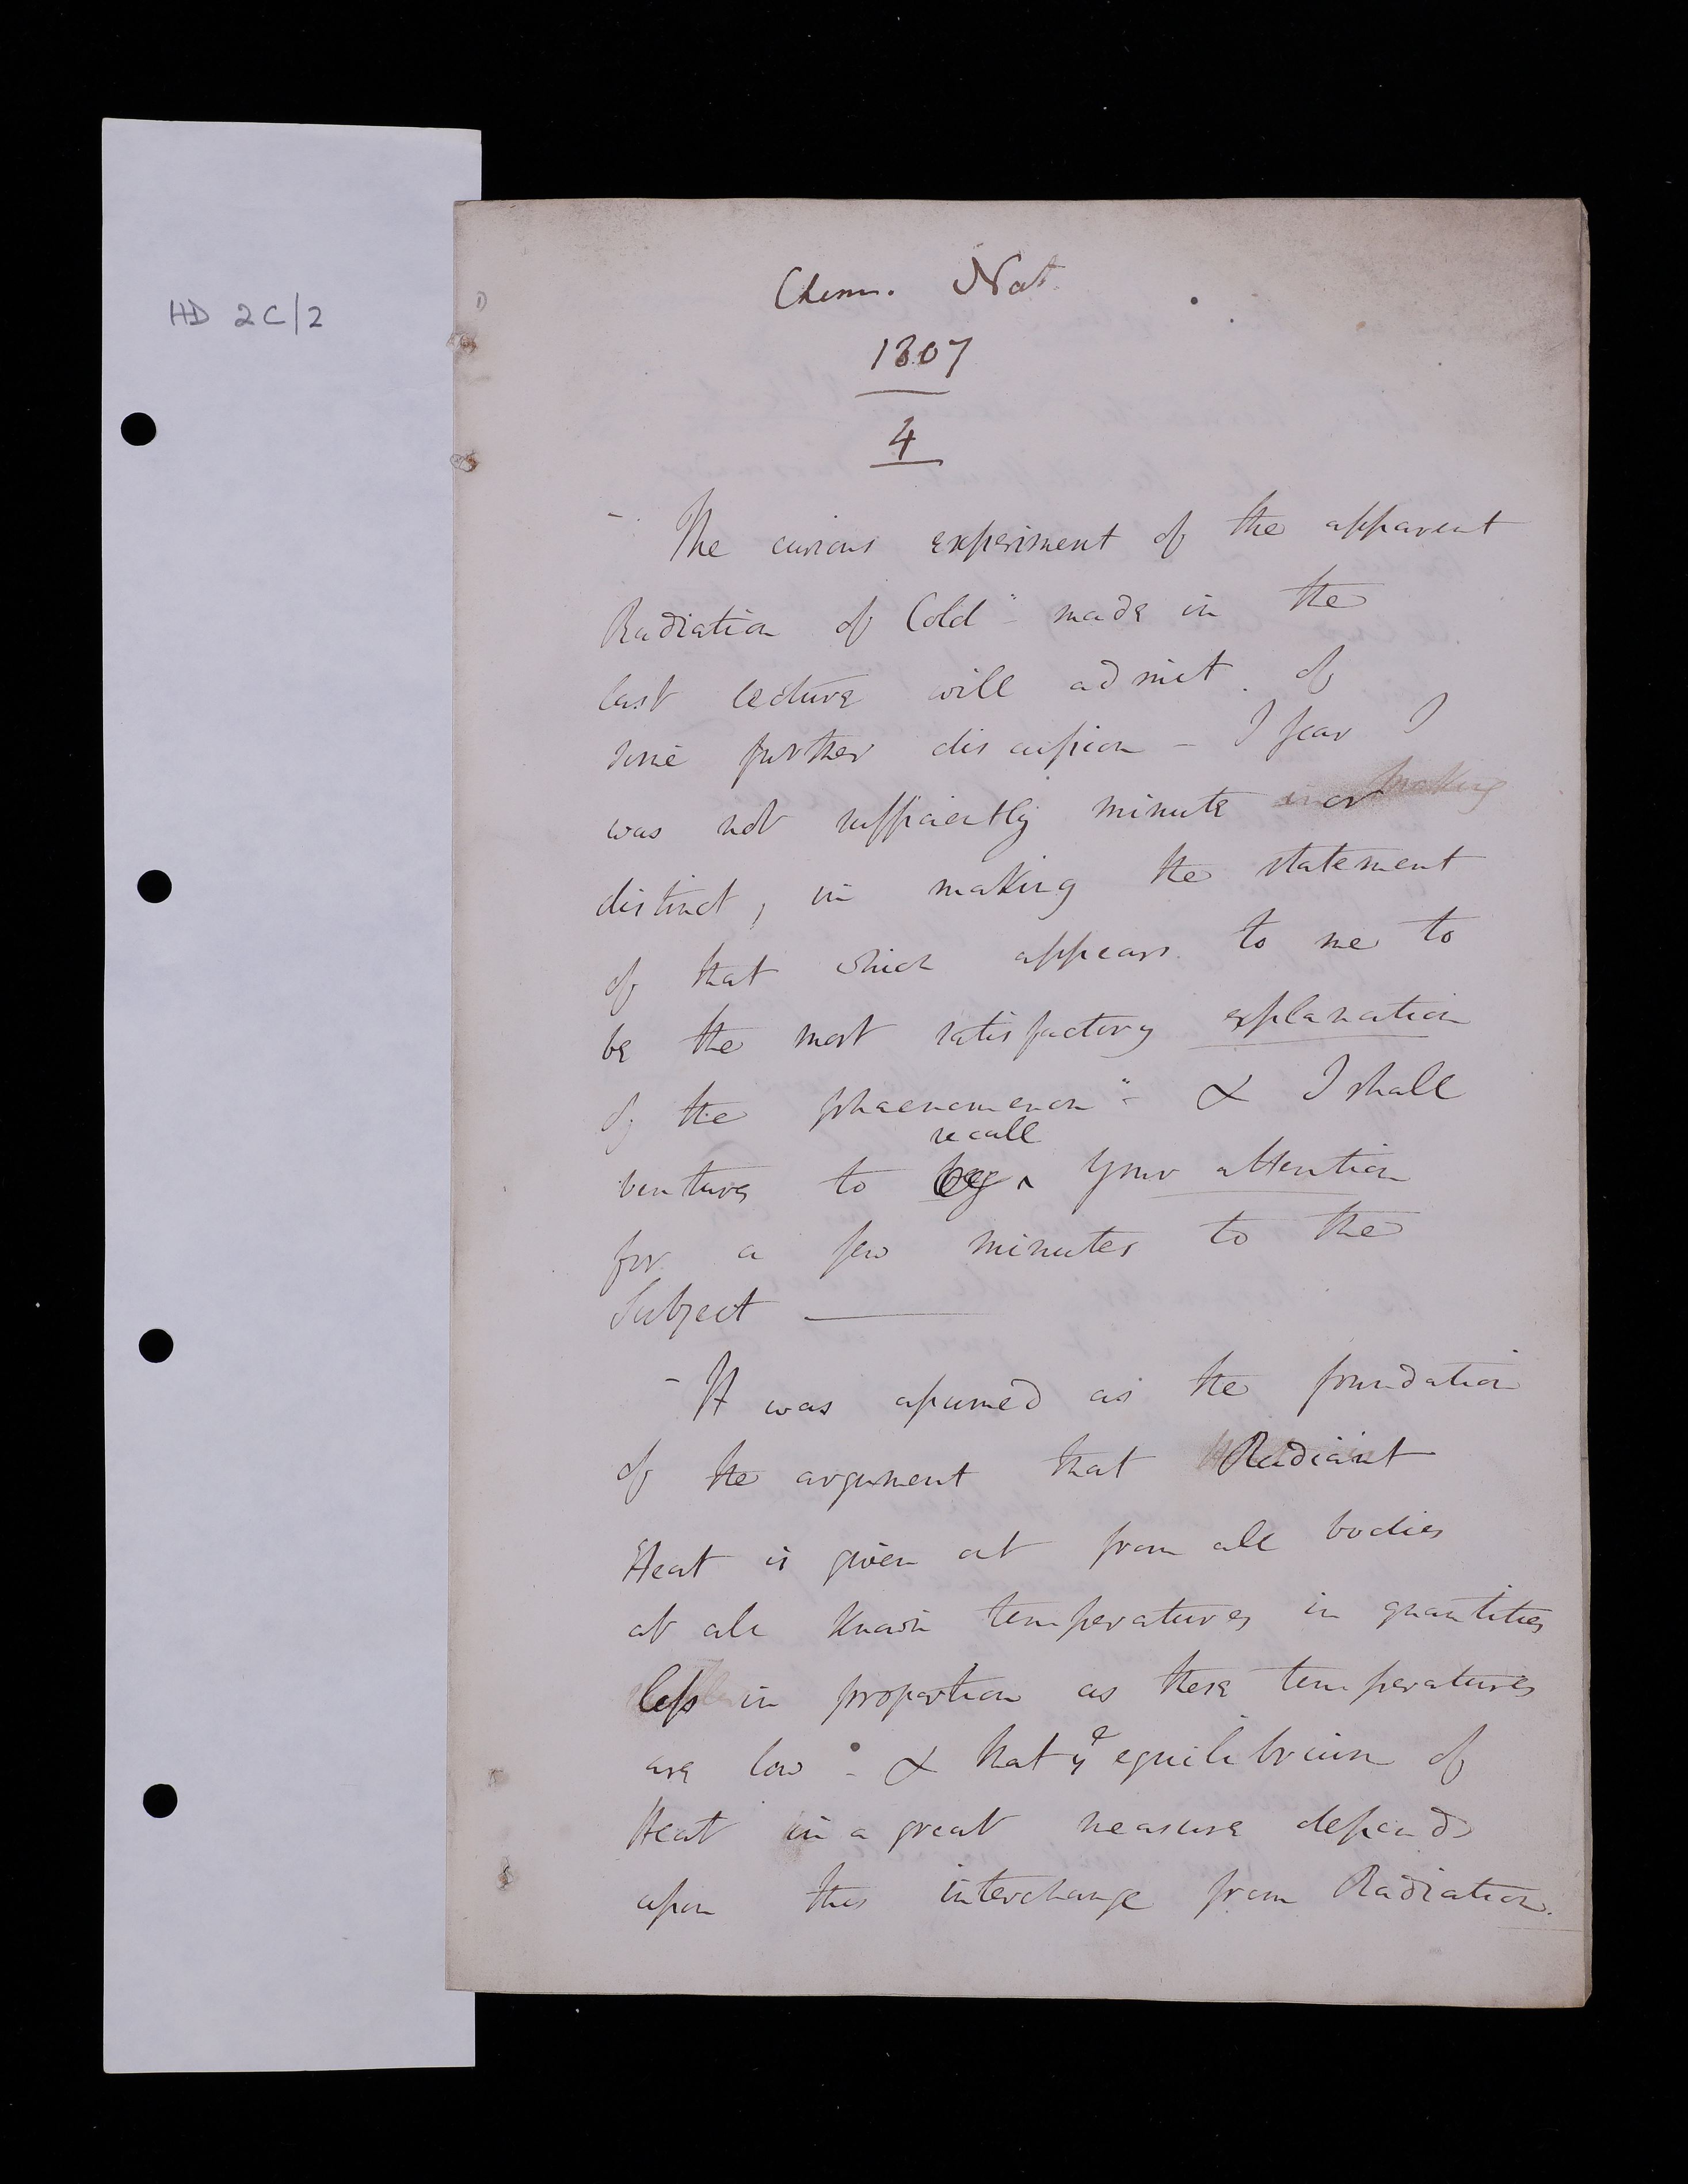 HD 2C/2
1)
Chem. Nat.
1807
4
- The curious experiment of the apparent
Radiation of Cold" - made in the
last lecture will admit of
some further discussion - I fear I
was not sufficiently minute in or making
distinct, in making the statement
of that which appears to me to
be the most satisfactory explanation
of the phaenomenon" - & I shall
recall
venture to beg ^ your attention
for a few minutes to the
Subject ———
- It was assumed as the foundation
of the argument that Radiant
Heat is given out from all bodies
at all known temperatures in quantities
less in proportion as these temperatures
are low - & that ye equilibrium of
Heat in a great measure depends
upon this interchange from Radiation.